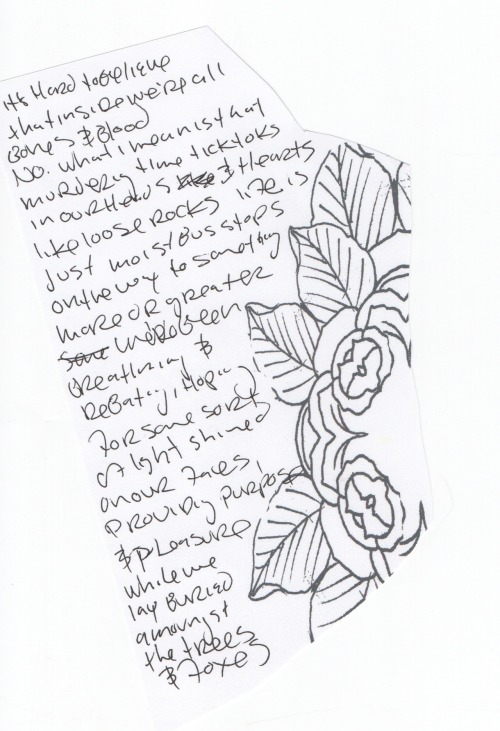 it's Hard to believe
that inside we're all
Bones & Blood
No. what i mean is that
murdery time ticktoks
in our Heads & Hearts
like loose rocks life is
just moist Bus stops
on the way to something
more or greater
we've been
Breathing &
Debating, Hoping
for some sort
of light shined
on our faces,
Providing purpose
& pleasure
while we
lay Buried
amongst
the trees
& foxes